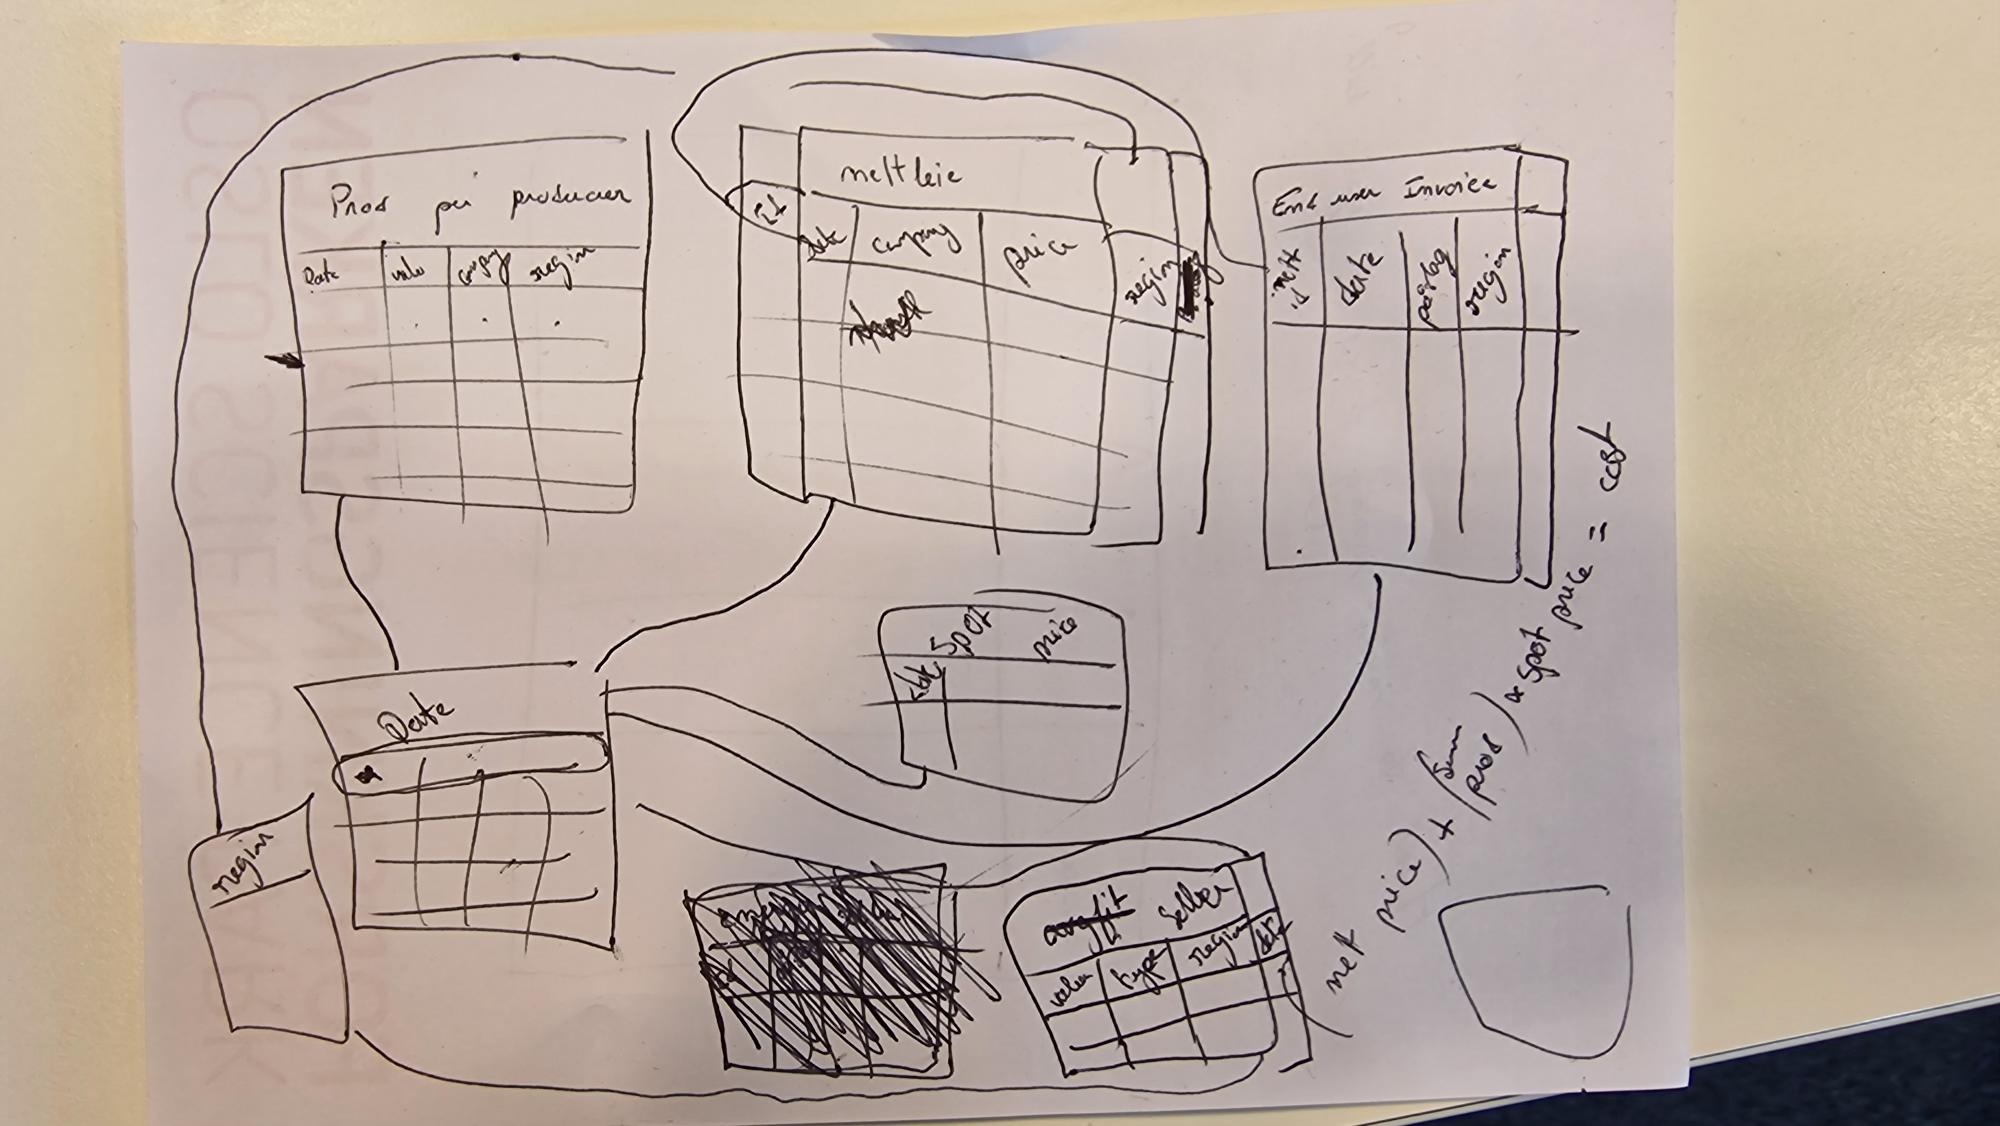 Prod per producer
Date valu company region
nettleie
id date company price region
End user Invoice
nett id date påslag region
Spot price
date
Date
region
Seller
value type region date
nett price) + (sum prod) * spot price = cost
OSLO SCIENCE PARK